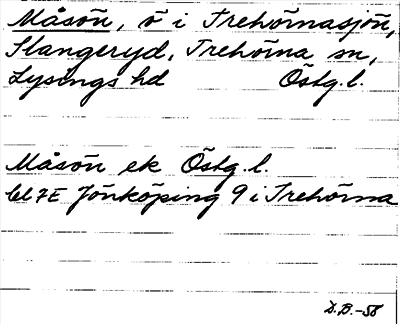 Måsön, ö i Trehörnasjön,
Slangeryd, Trehörna sn,
Lysings hd Östg. l.
Måsön ek Östg. l.
bl 7E Jönköping 9 i Trehörna
D.B.-58